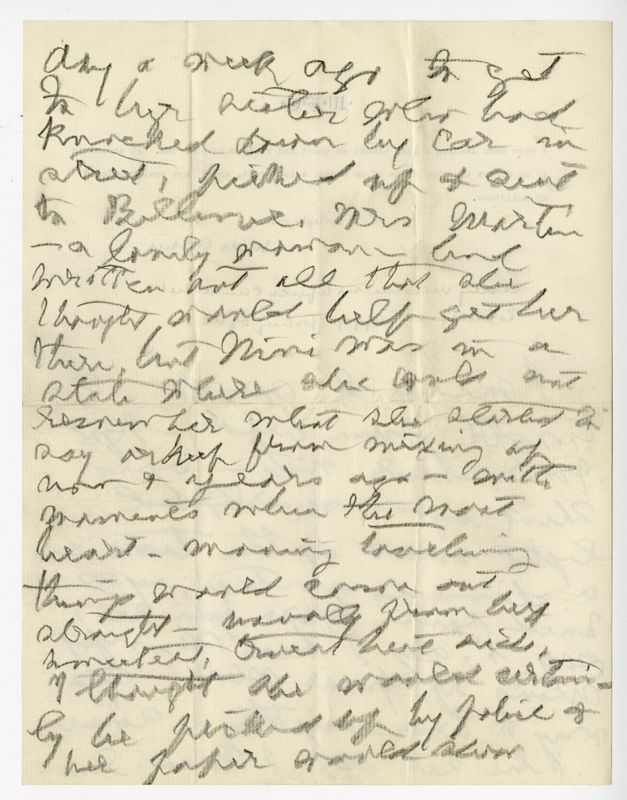 day a week ago to get
to her sister who had
knocked down by car in
street, picked up & sent
to Bellevue. Mrs Martin
– a lovely woman – had
written out all that she
thought would help get her
there, but Mimi was in a
state where she could not
remember what she started to
say or keep from mixing up
now & years ago – with
moments when the most
heart-moving touching
things would come out
straight – usually from her
sweetest, sweet heart side.
I thought she would certain-
ly be picked up by police &
her paper would show